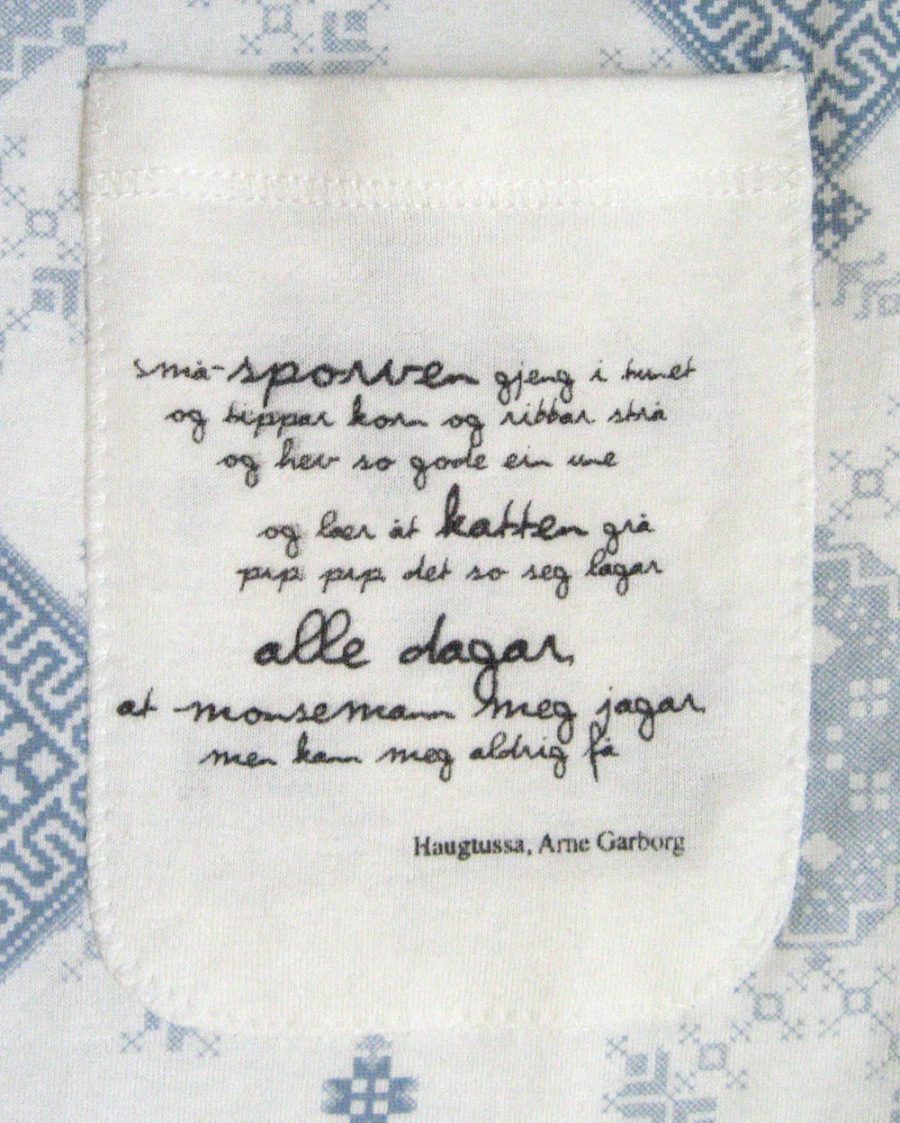 små-sporven gjeng i tunet
og tippar korn og ribbar strå
og hev so gode ein une
og lær åt katten grå
pip pip det so seg lagar
alle dagar,
at monsemann meg jagar
men kann meg aldrig få
Haugtussa, Arne Garborg